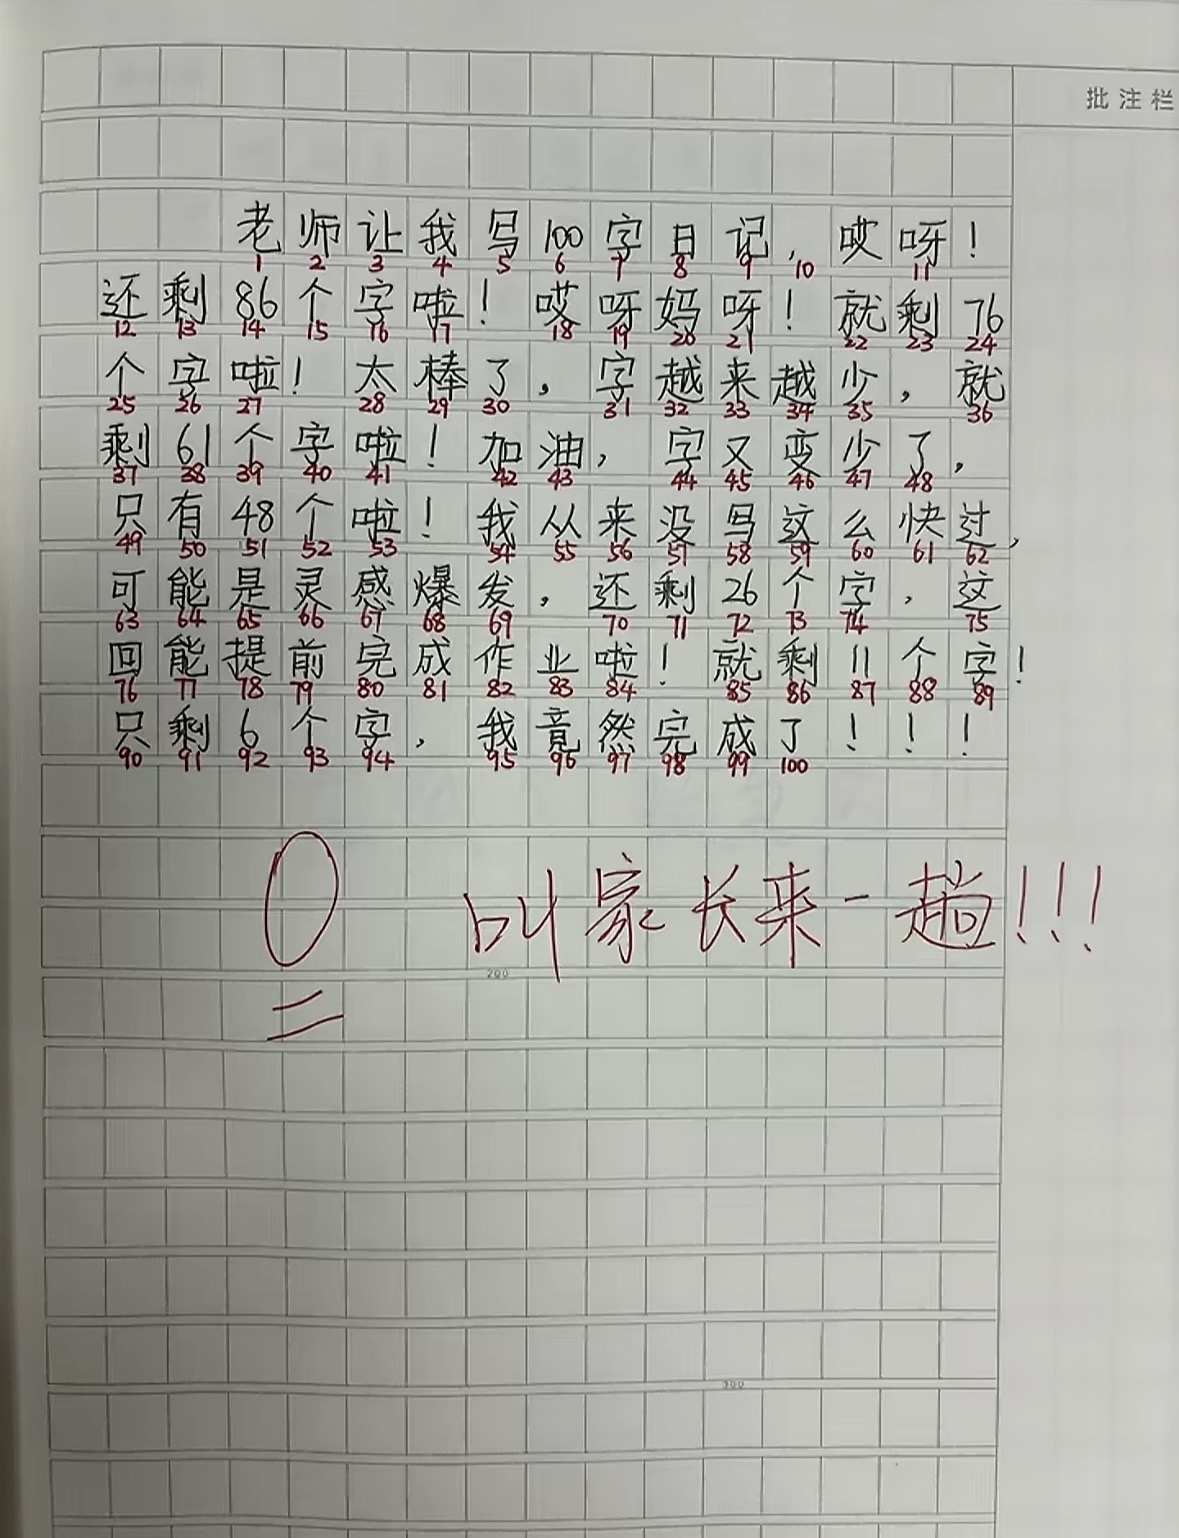 批注栏
老师让我写100字日记,哎呀!
1 2 3 4 5 6 7 8 9 10 11
还剩86个字啦!哎呀妈呀!就剩76
12 13 14 15 16 17 18 19 20 21 22 23 24
个字啦!太棒了,字越来越少,就
25 26 27 28 29 30 31 32 33 34 35 36
剩61个字啦!加油,字又变少了,
37 38 39 40 41 42 43 44 45 46 47 48
只有48个啦!我从来没写这么快过,
49 50 51 52 53 54 55 56 57 58 59 60 61 62
可能是灵感爆发,还剩26个字,这
63 64 65 66 67 68 69 70 71 72 73 74 75
回能提前完成作业啦!就剩11个字!
76 77 78 79 80 81 82 83 84 85 86 87 88 89
只剩6个字,我竟然完成了!!!
90 91 92 93 94 95 96 97 98 99 100
0 叫家长来一趟!!!
200
300